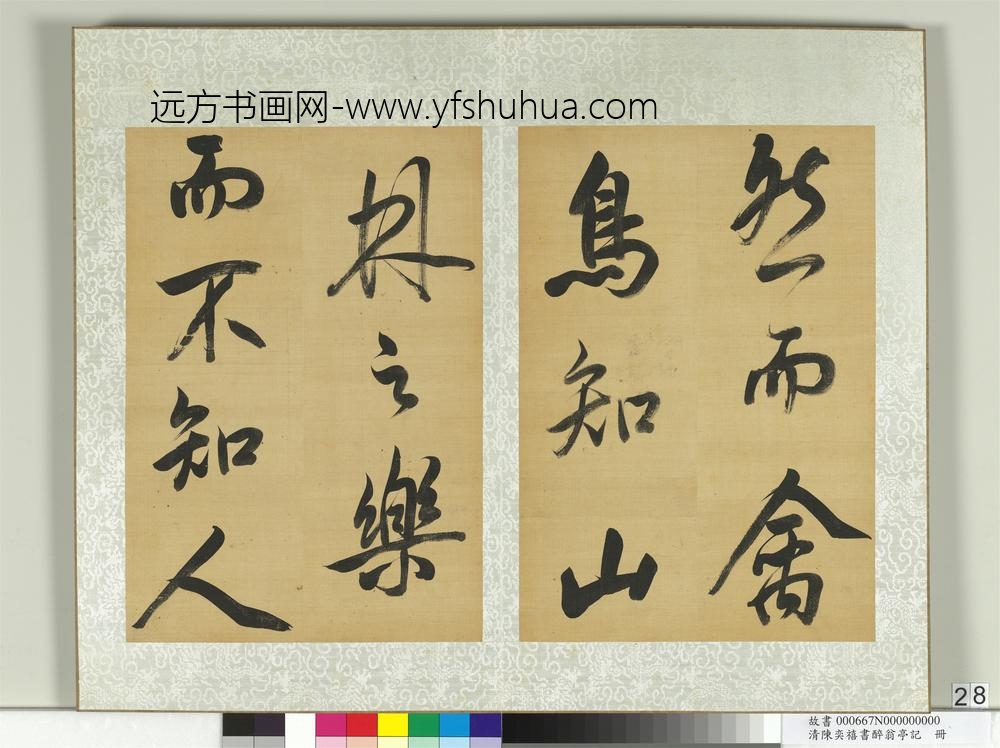 远方书画网-www.yfshuhua.com
然而禽
鳥知山
林之樂
而不知人
28
故書 000667N000000000
清陳奕禧書醉翁亭記 冊